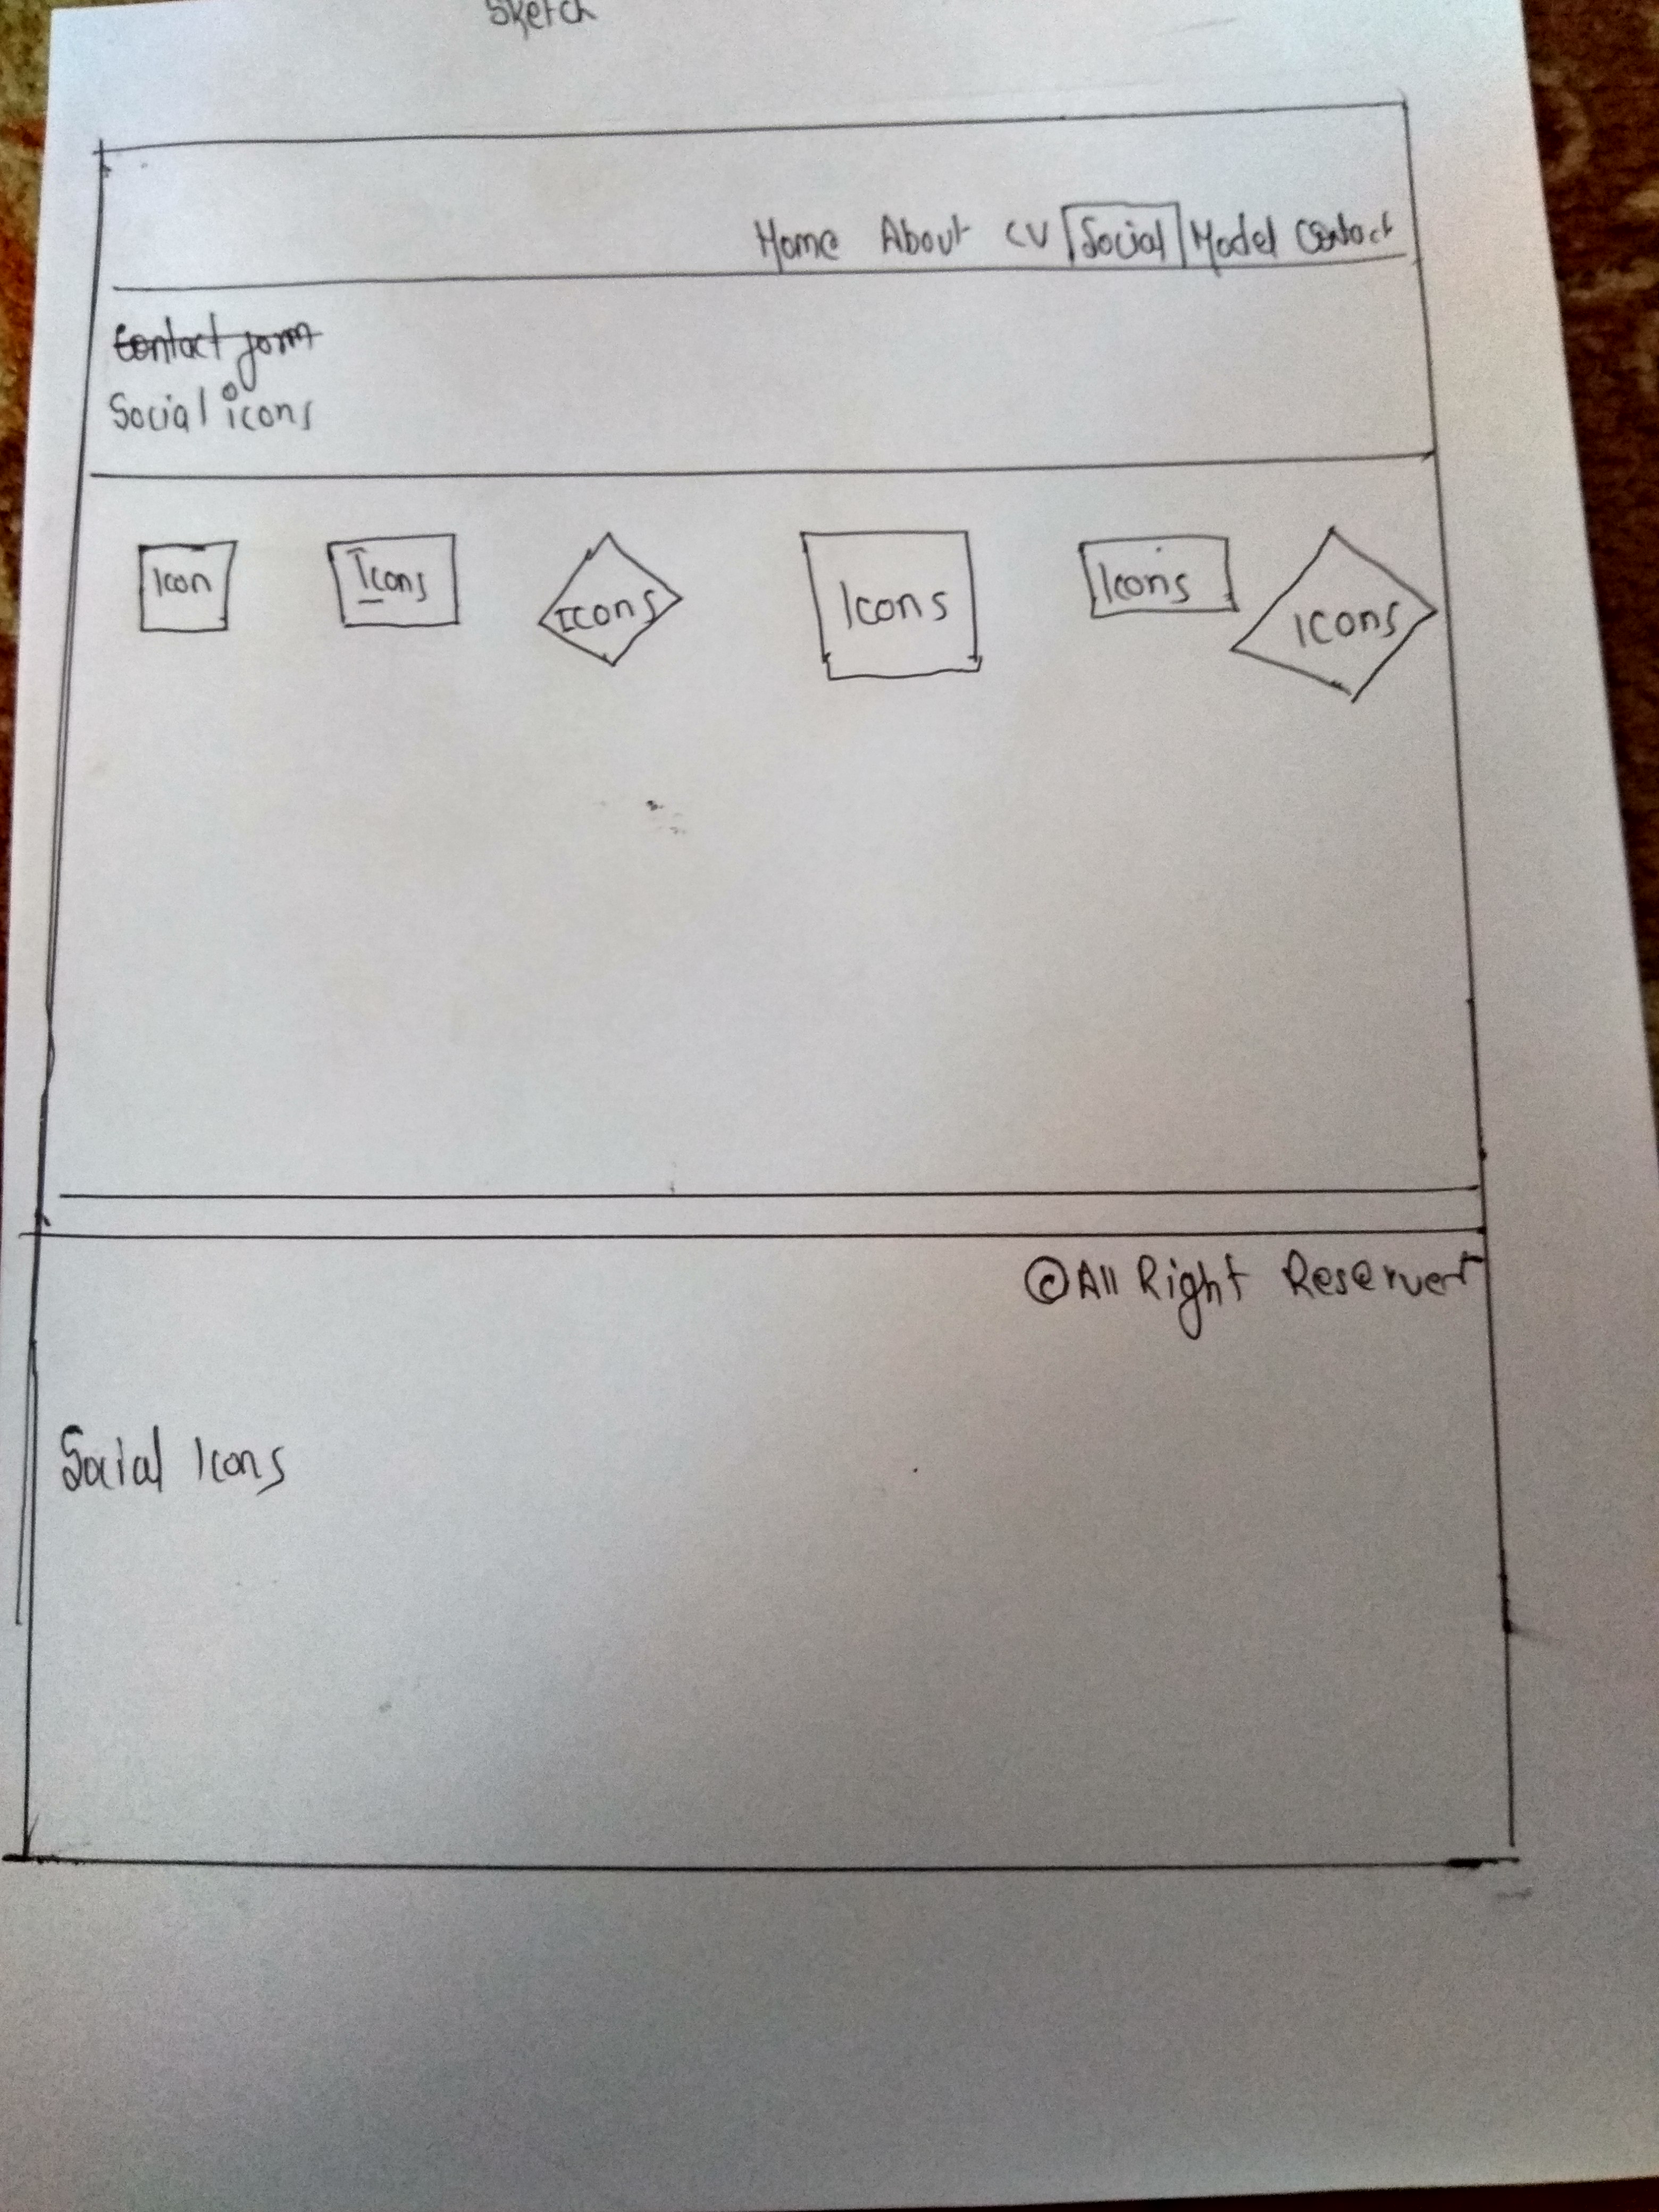 Sketch
Home About CV Social Model Contact
Contact form
Social icons
Icon Icons Icons Icons Icons Icons
©All Right Reserved
Social Icons